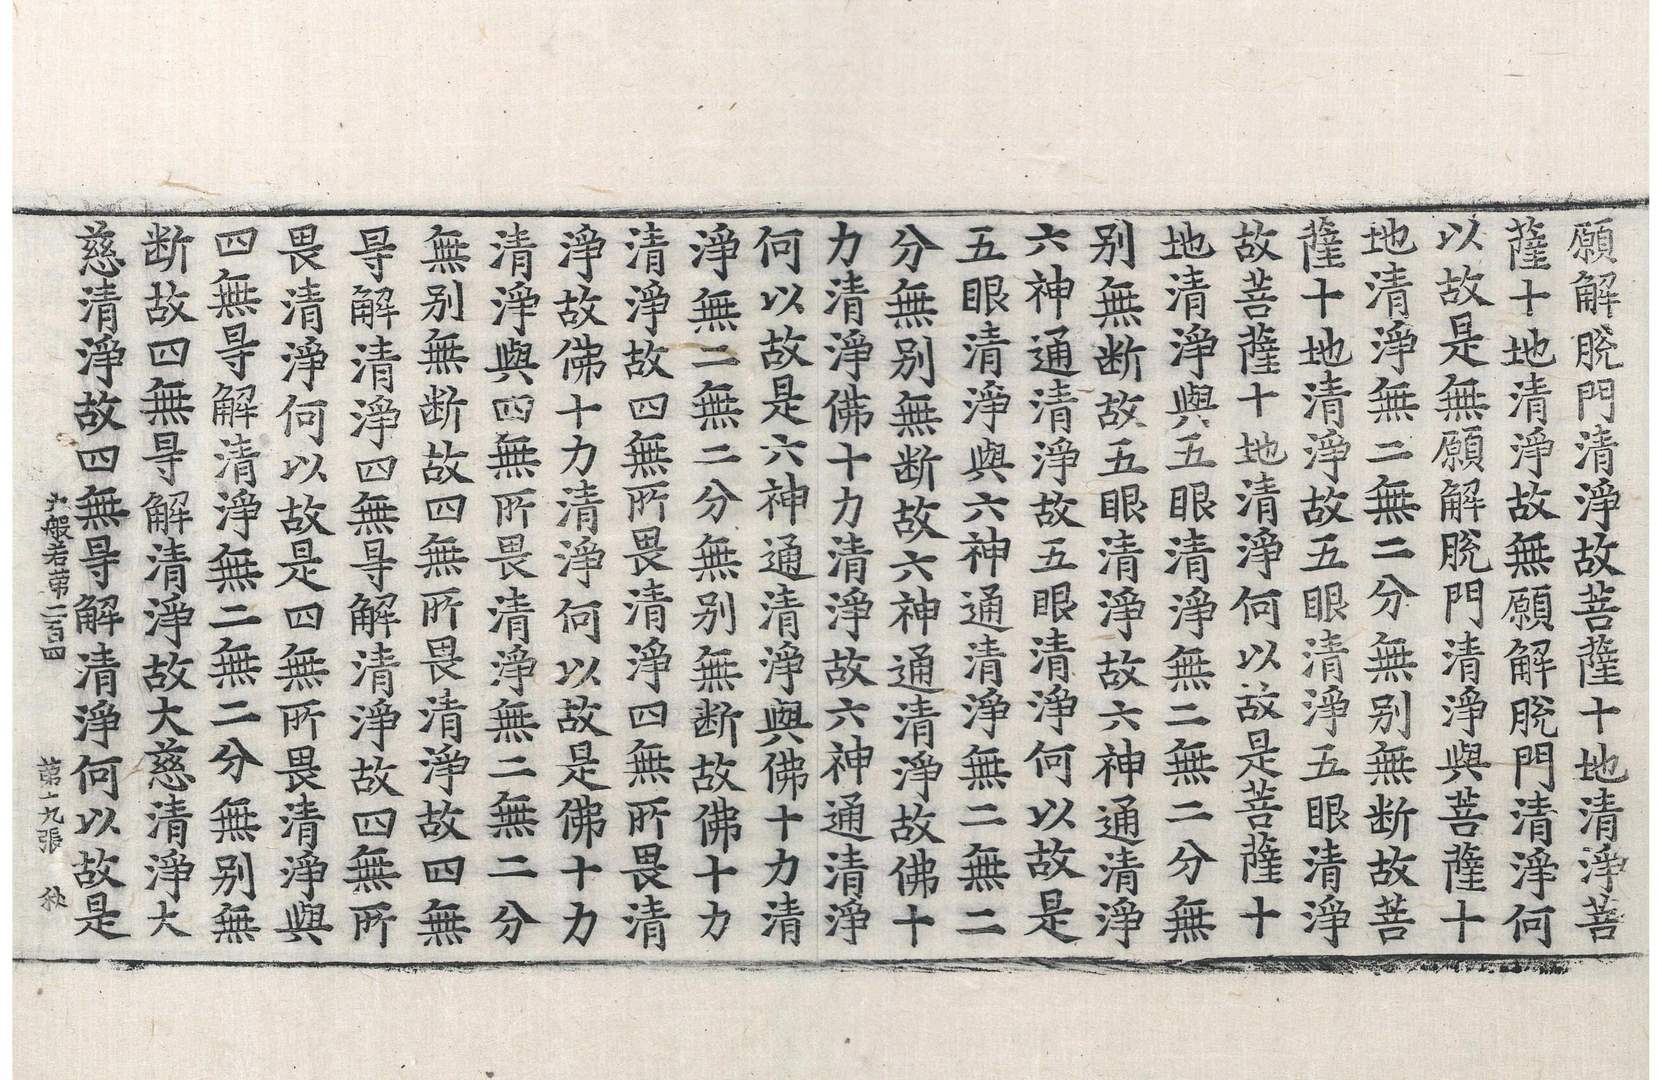 願解脫門清淨故菩薩十地清淨菩
薩十地清淨故無願解脫門清淨何
以故是無願解脫門清淨與菩薩十
地清淨無二無二分無別無断故菩
薩十地清淨故五眼清淨五眼清淨
故菩薩十地清淨何以故是菩薩十
地清淨與五眼清淨無二無二分無
別無断故五眼清淨故六神通清淨
六神通清淨故五眼清淨何以故是
五眼清淨與六神通清淨無二無二
分無別無断故六神通清淨故佛十
力清淨佛十力清淨故六神通清淨
何以故是六神通清淨與佛十力清
淨無二無二分無別無断故佛十力
清淨故四無所畏清淨四無所畏清
淨故佛十力清淨何以故是佛十力
清淨與四無所畏清淨無二無二分
無別無断故四無所畏清淨故四無
㝵解清淨四無㝵解清淨故四無所
畏清淨何以故是四無所畏清淨與
四無㝵解清淨無二無二分無別無
断故四無㝵解清淨故大慈清淨大
慈清淨故四無㝵解清淨何以故是
大般若第二百四 第十九張 秋